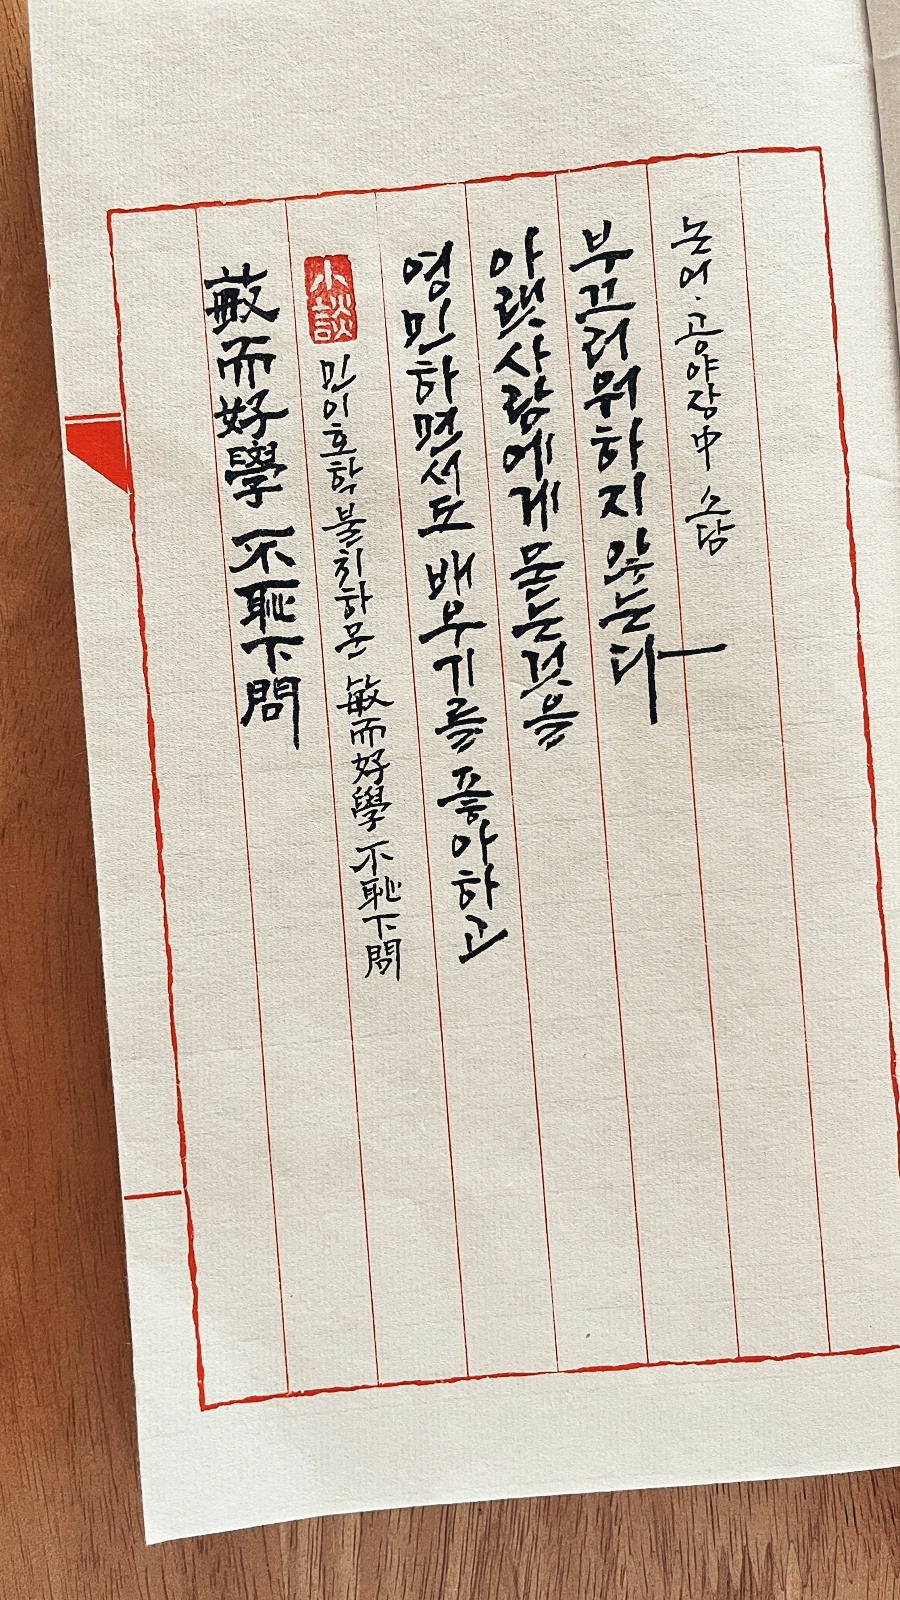 敏而好學 不恥下問
小談
민이호학불치하문 敏而好學 不恥下問
영민하면서도 배우기를 좋아하고
아랫사람에게 묻는것을
부끄러워하지 않는다
논어·공야장中 소담